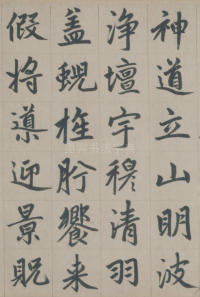 神道立山明波
淨壇宇穆清羽
盖蜺旌肸饗来
假将導迎景貺